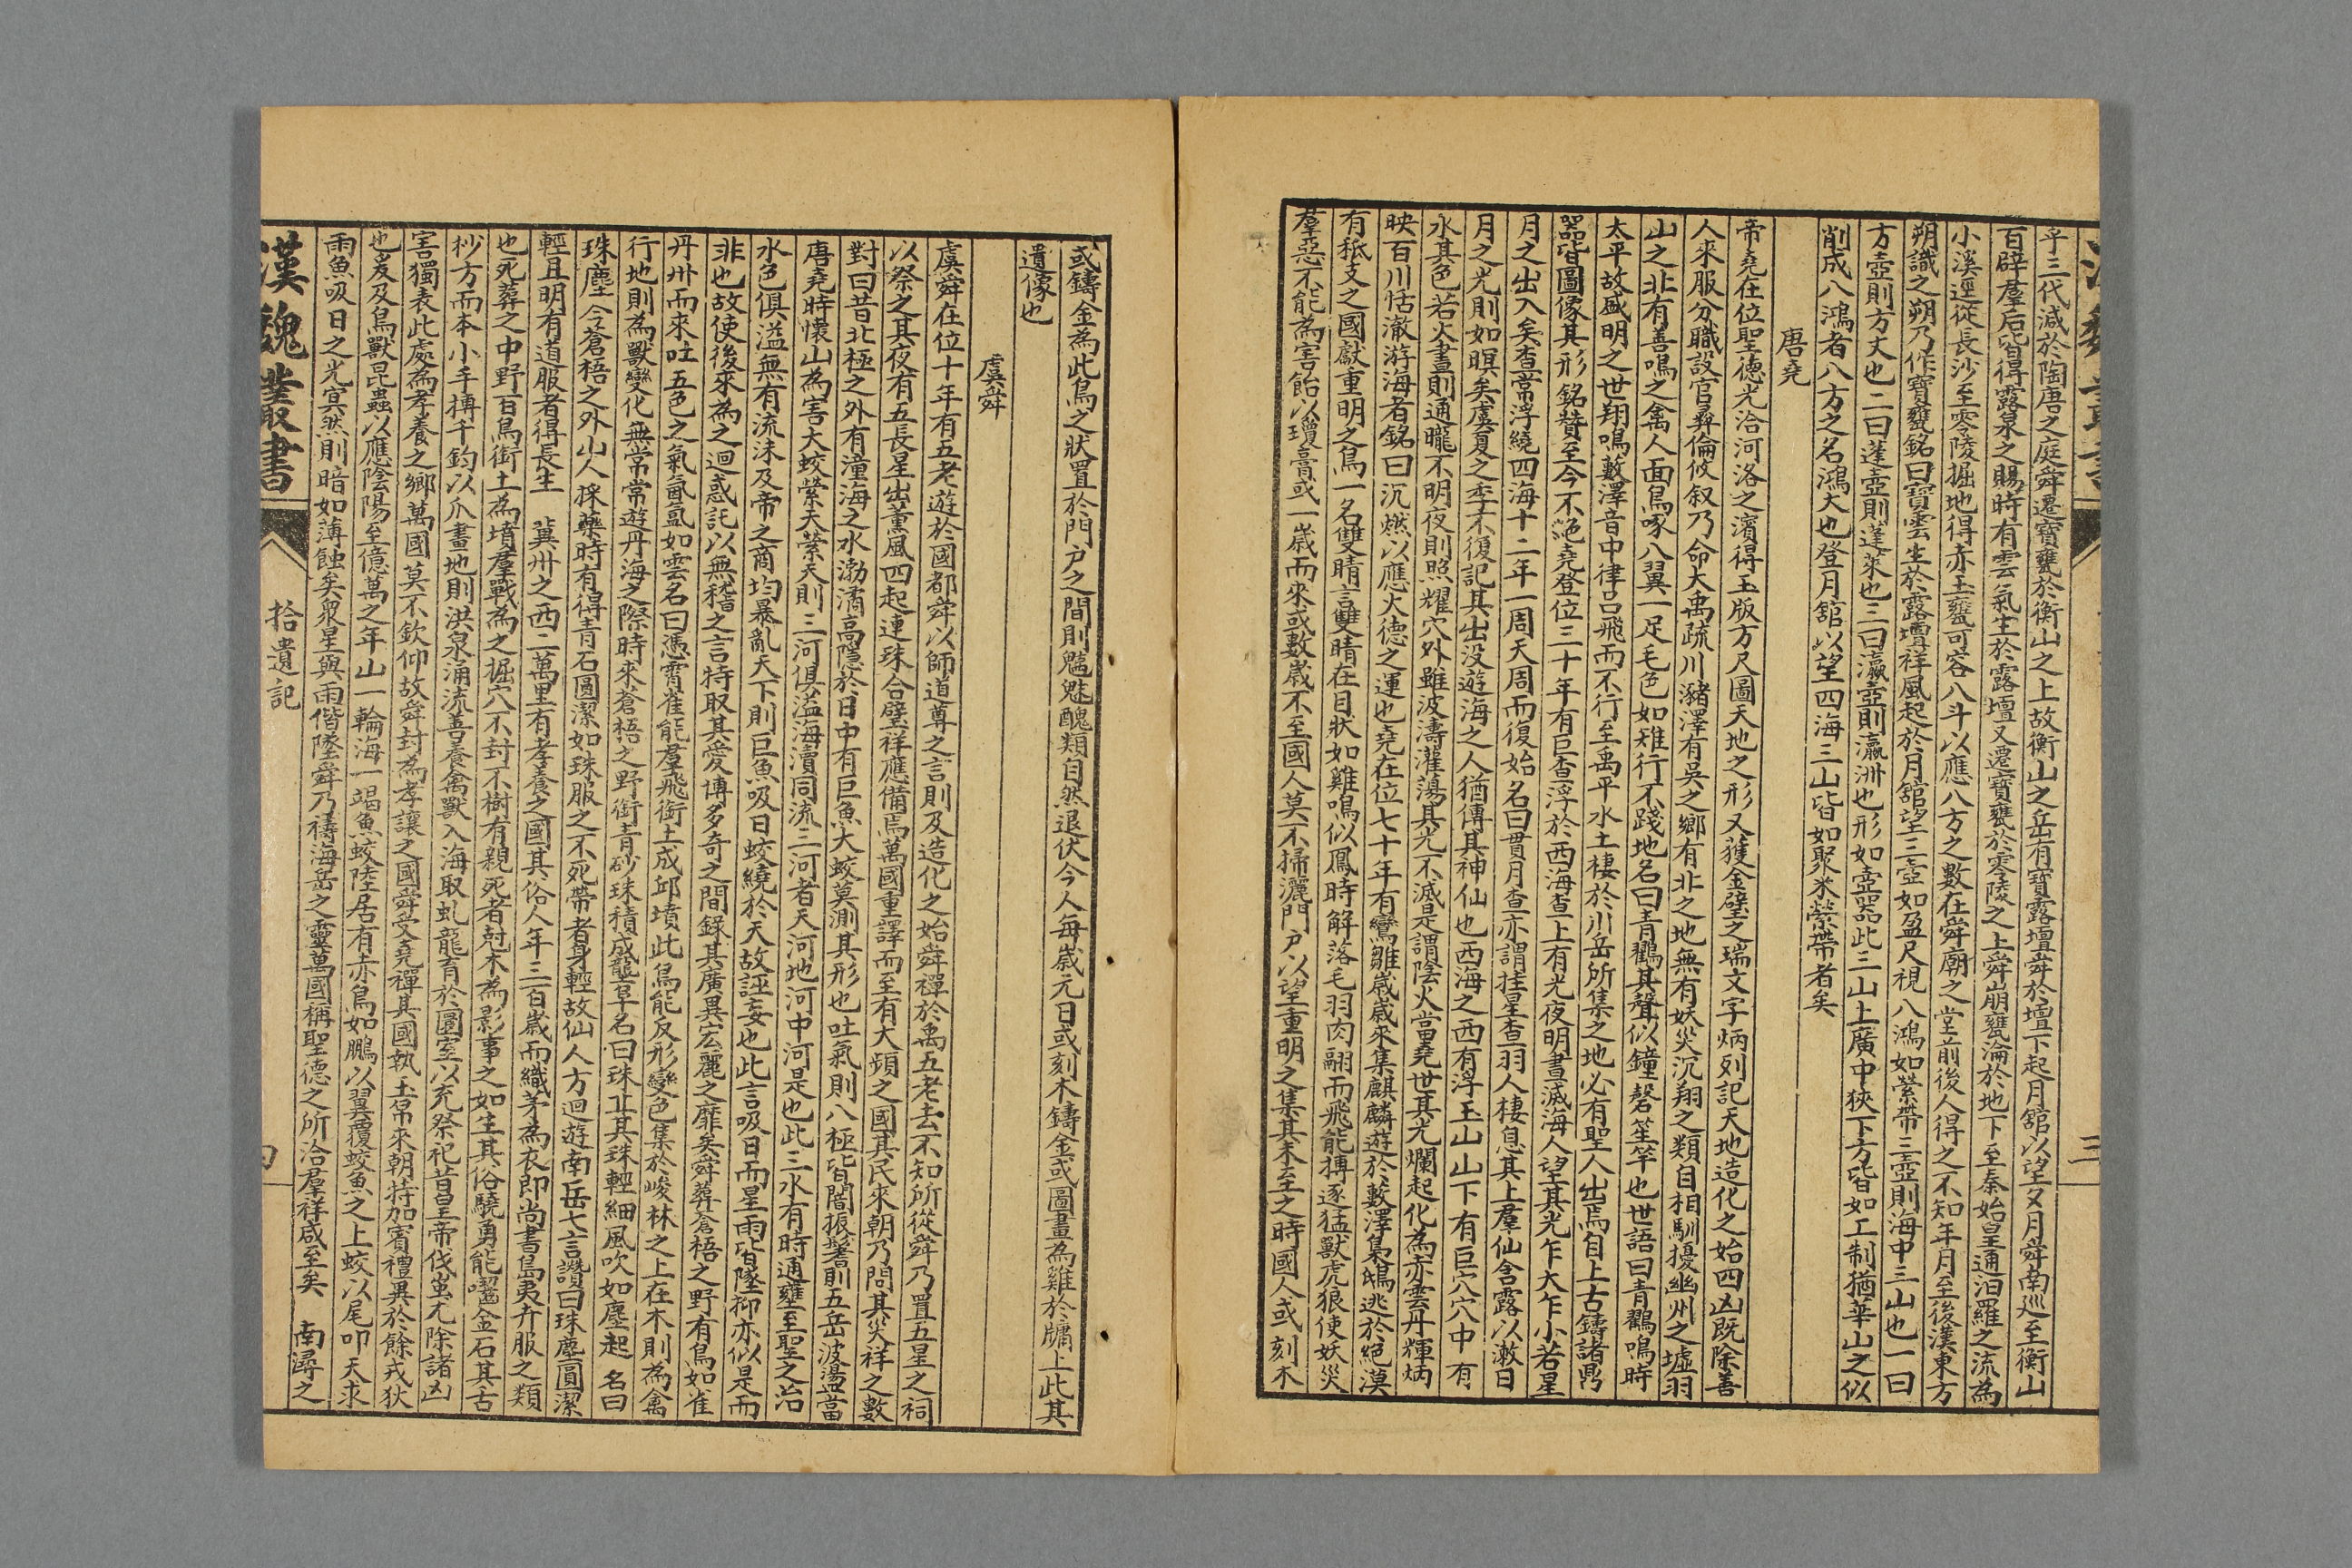 平三代減於陶唐之庭舜遷寶甕於衡山之上故衡山之岳有寶露壇舜於壇下起月舘以望夕月舜南巡至衡山
百辟羣后皆得露泉之賜時有雲氣生於露壇又遷寶甕於零陵之上舜崩甕淪於地下至秦始皇通汨羅之流為
小溪逕從長沙至零陵掘地得赤玉甕可容八斗以應八方之數在舜廟之堂前後人得之不知年月至後漢東方
朔識之朔乃作寶甕銘曰寶雲生於露壇祥風起於月舘望三壺如盈尺視八鴻如縈帶三壺則海中三山也一曰
方壺則方丈也二曰蓬壺則蓬萊也三曰瀛壺則瀛洲也形如壺器此三山上廣中狹下方皆如工制猶華山之似
削成八鴻者八方之名鴻大也登月舘以望四海三山皆如聚米縈帶者矣
唐堯
帝堯在位聖德光洽河洛之濱得玉版方尺圖天地之形又獲金璧之瑞文字炳列記天地造化之始四凶既除善
人來服分職設官彝倫攸叙乃命大禹疏川瀦澤有吳之鄉有北之地無有妖災沉翔之類自相馴擾幽州之墟羽
山之北有善鳴之禽人面鳥喙八翼一足毛色如雉行不踐地名曰青鸐其聲似鐘磬笙竽也世語曰青鸐鳴時
太平故盛明之世翔鳴藪澤音中律呂飛而不行至禹平水土棲於川岳所集之地必有聖人出焉自上古鑄諸鼎
器皆圖像其形銘贊至今不絕堯登位三十年有巨查浮於西海查上有光夜明晝滅海人望其光乍大乍小若星
月之出入矣查常浮繞四海十二年一周天周而復始名曰貫月查亦謂挂星查羽人棲息其上羣仙含露以漱日
月之光則如暝矣虞夏之季不復記其出沒遊海之人猶傳其神仙也西海之西有浮玉山山下有巨穴穴中有
水其色若火晝則通曨不明夜則照耀穴外雖波濤灌蕩其光不滅是謂陰火當堯世其光爛起化為赤雲丹輝炳
映百川恬澈游海者銘曰沉燃以應火德之運也堯在位七十年有鸞雛歲歲來集麒麟遊於藪澤梟鴟逃於絕漠
有秖支之國獻重明之鳥一名雙睛言雙睛在目狀如雞鳴似鳳時解落毛羽肉翮而飛能搏逐猛獸虎狼使妖災
羣惡不能為害飴以瓊膏或一歲而來或數歲不至國人莫不掃灑門戶以望重明之集其未至之時國人或刻木
三
或鑄金為此鳥之狀置於門戶之間則魑魅醜類自然退伏今人每歲元日或刻木鑄金或圖畫為雞於牖上此其
遺像也
虞舜
虞舜在位十年有五老遊於國都舜以師道尊之言則及造化之始舜禪於禹五老去不知所從舜乃置五星之祠
以祭之其夜有五長星出薰風四起連珠合璧祥應備焉萬國重譯而至有大頻之國其民來朝乃問其災祥之數
對曰昔北極之外有潼海之水渤潏高隱於日中有巨魚大蛟莫測其形也吐氣則八極皆闇振鬐則五岳波盪當
唐堯時懷山為害大蛟縈天縈天則三河俱溢海瀆同流三河者天河地河中河是也此三水有時通壅至聖之治
水色俱溢無有流沫及帝之商均暴亂天下則巨魚吸日蛟繞於天故誣妄也此言吸日而星雨皆墜抑亦似是而
非也故使後來為之迴惑託以無稽之言特取其愛博多奇之間錄其廣異宏麗之靡矣舜葬蒼梧之野有鳥如雀
丹州而來吐五色之氣氤氳如雲名曰憑霄雀能羣飛銜土成邱墳此鳥能反形變色集於峻林之上在木則為禽
行地則為獸變化無常常遊丹海之際時來蒼梧之野銜青砂珠積成壟阜名曰珠丘其珠輕細風吹如塵起名曰
珠塵今蒼梧之外山人採藥時有得青石圓潔如珠服之不死帶者身輕故仙人方迴遊南岳七言讚曰珠塵圓潔
輕且明有道服者得長生　冀州之西二萬里有孝養之國其俗人年三百歲而織茅為衣即尚書島夷卉服之類
也死葬之中野百鳥銜土為墳羣獸為之掘穴不封不樹有親死者尅木為影事之如生其俗驍勇能囓金石其舌
杪方而本小手搏千鈞以爪畫地則洪泉涌流善養禽獸入海取虬龍育於圜室以充祭祀昔皇帝伐蚩尤除諸凶
害獨表此處為孝養之鄉萬國莫不欽仰故舜封為孝讓之國舜受堯禪其國執玉帛來朝特加賓禮異於餘戎狄
也爰及鳥獸昆蟲以應陰陽至億萬之年山一輪海一竭魚蛟陸居有赤鳥如鵬以翼覆蛟魚之上蛟以尾叩天求
雨魚吸日之光冥然則暗如薄蝕矣眾星與雨偕墜舜乃禱海岳之靈萬國稱聖德之所洽羣祥咸至矣　南潯之
漢魏叢書
拾遺記